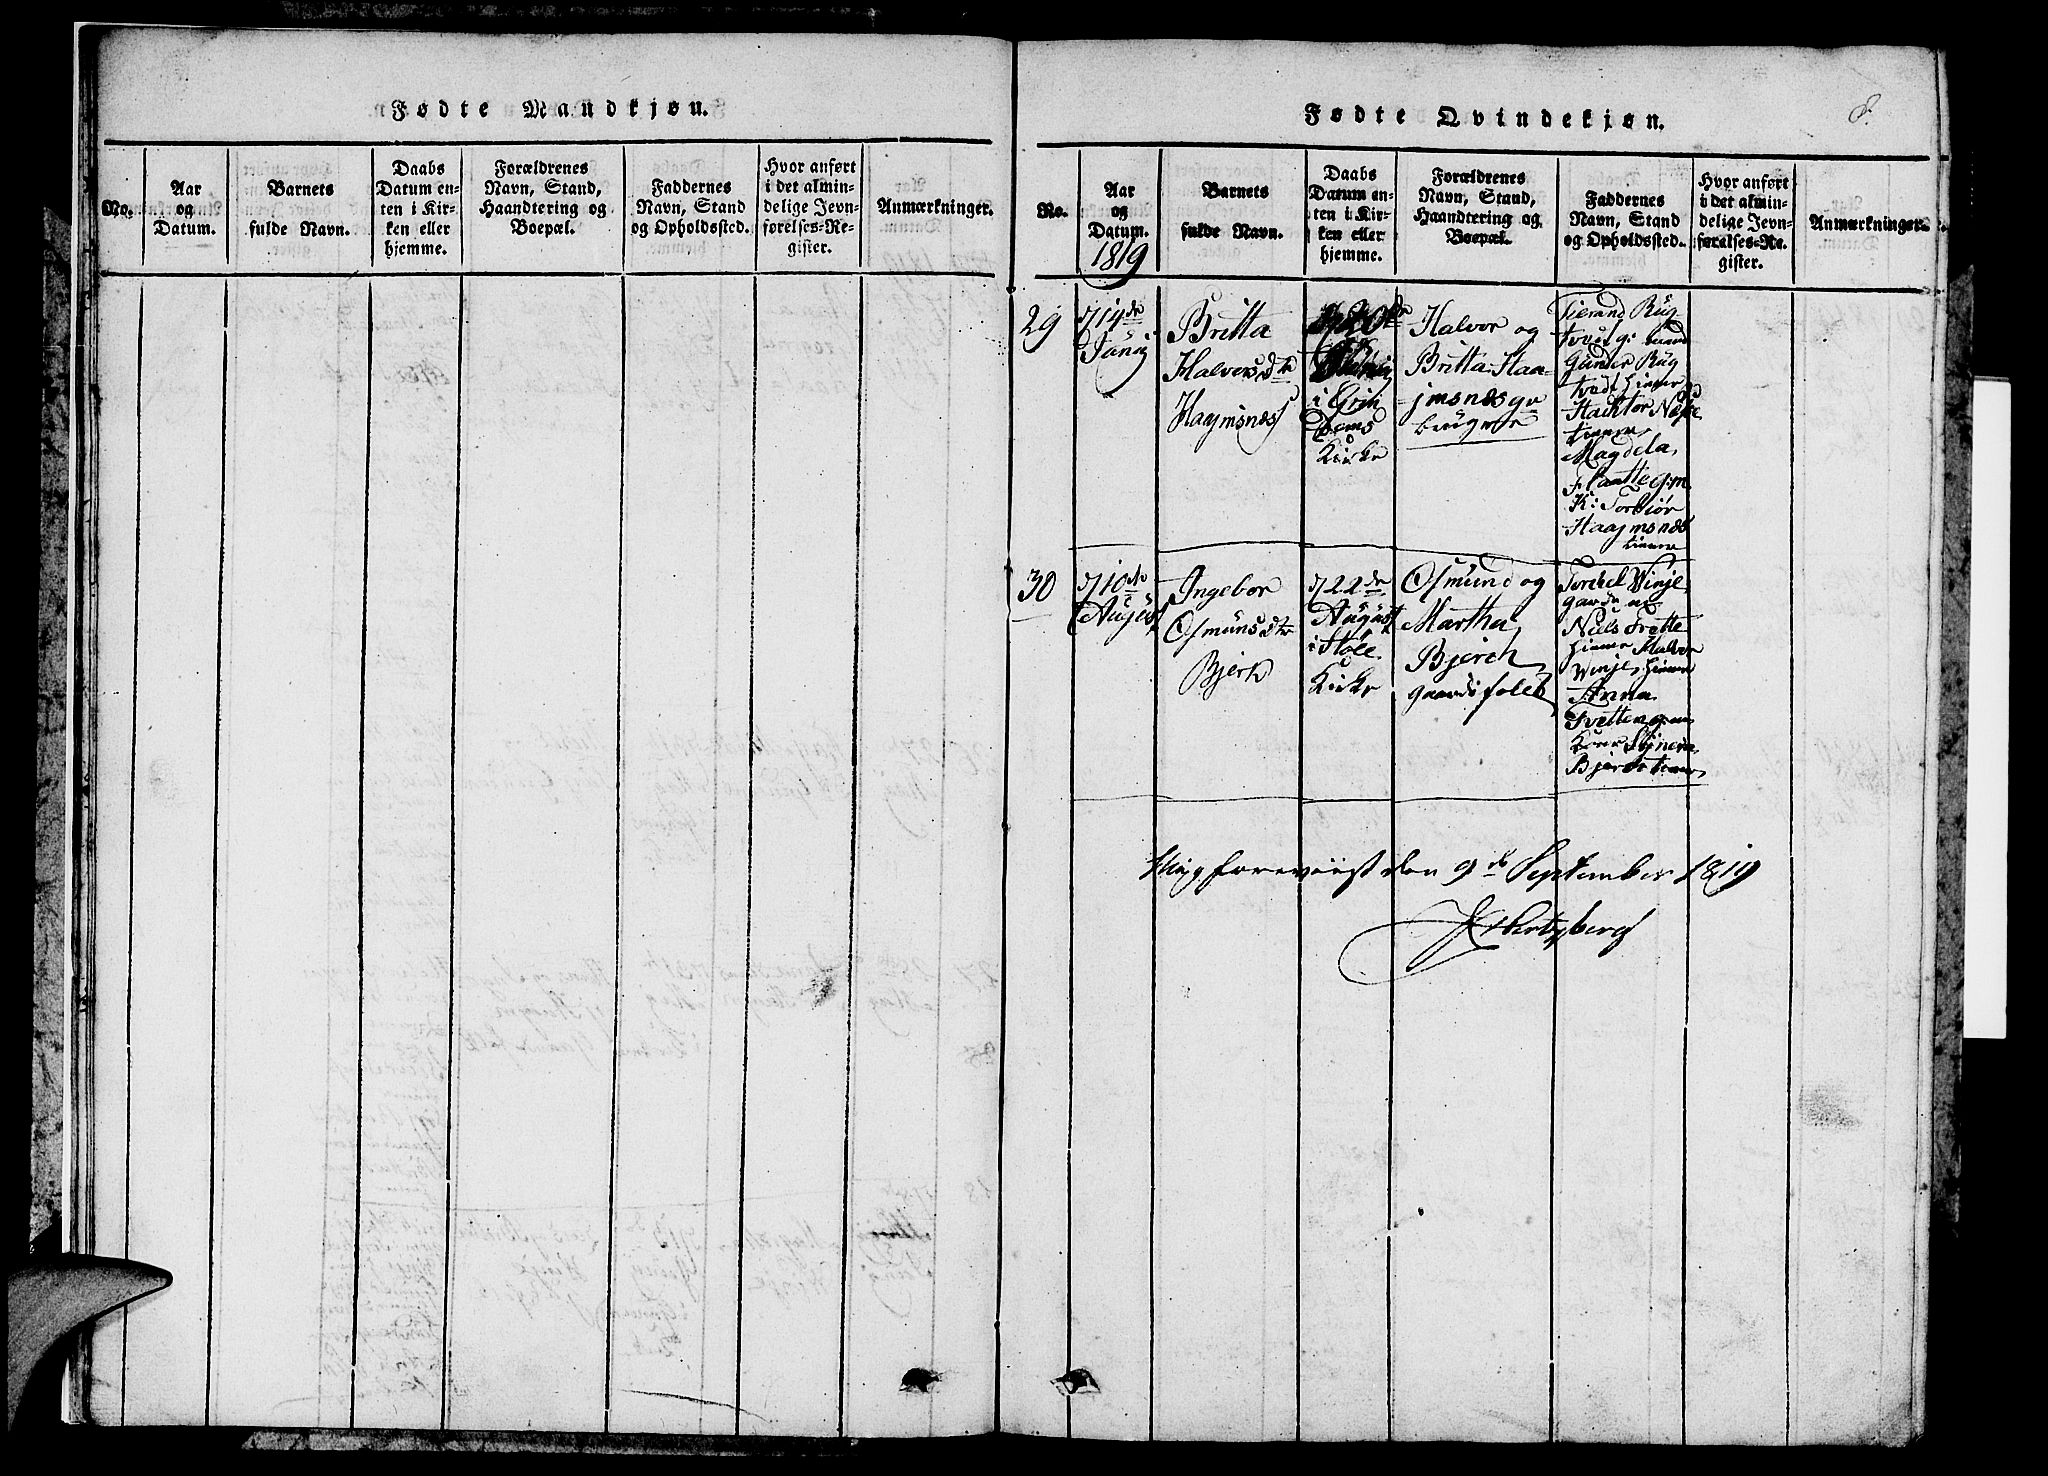 Fødte Mandkjøn.
No.
Aar
og
Datum.
Barnets
fulde Navn.
Daabs
Datum en-
ten i Kir-
ken eller
hjemme.
Forældrenes
Navn, Stand,
Haandtering og
Boepæl.
Faddernes
Navn, Stand
og Opholdssted.
Hvor anført
i det almin-
delige Jevn-
førelses-Re-
gister.
Anmærkninger.
Fødte Qvindekjøn.
8.
No.
Aar
og
Datum.
1819
Barnets
fulde Navn.
Daabs
Datum en-
ten i Kir-
ken eller
hjemme.
Forældrenes
Navn, Stand,
Haandtering og
Boepæl.
Faddernes
Navn, Stand
og Opholdssted.
Hvor anført
i det almin-
delige Jevn-
førelses-Re-
gister.
Anmærkninger.
29
14de
Junij
Britta
Halversdtr
Haajmsnes
20de
i Grin
Kirke
Halvor og
Britta Haa-
jmsnes
Tierand Rüg
Gunder Rüg
tvedt
Magdela
K: Torbiør
Haajmsnes
30
10de
August
Ingebor
Osmunsdtr
Bjerk
22de
August
i Støle
Kirke
Osmund og
Martha
Bjerch
gaardsfolk
Torckel Winje
Niels Tvette
Halvor
Winje
Anna
Tvetten
Bjerch
foreviist den 9de September 1819
Hertzberg